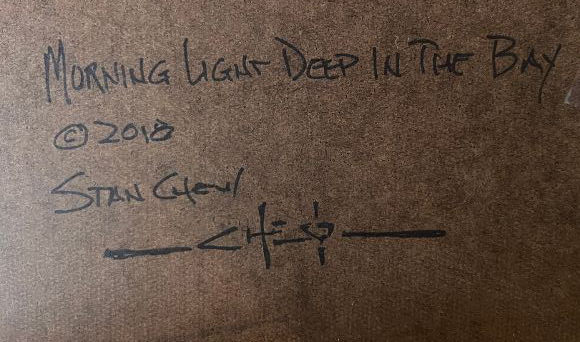 MORNING LIGHT DEEP IN THE BAY
© 2018
STAN CHEW